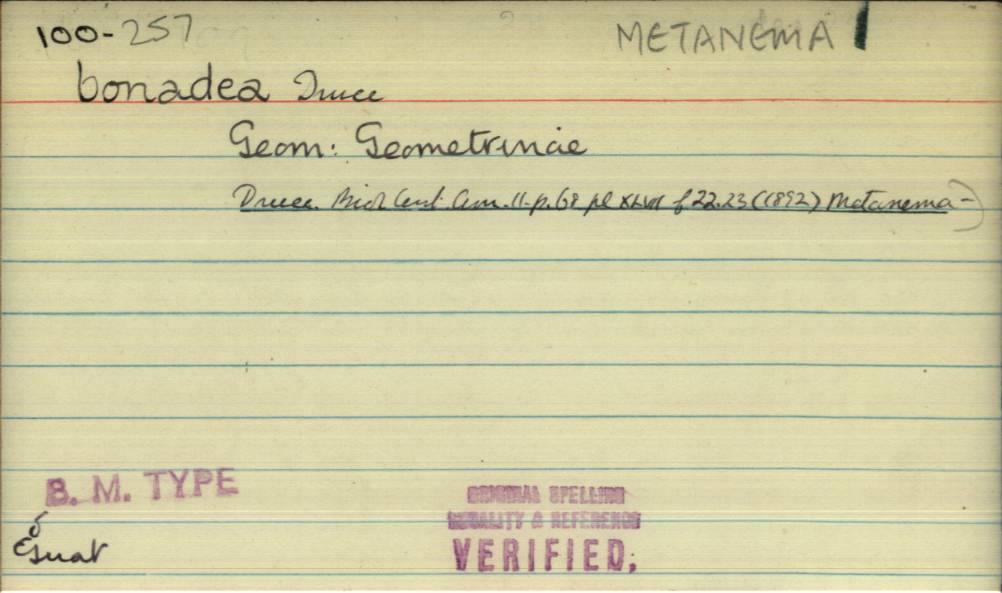 100-257
METANEMA
bonadea Druce
Geom: Geometrinae
Druce. Biol Cent. Am. II. p. 68 pl XLVII f 22.23 (1892) Metanema -)
B. M. TYPE
♂
Guat
ORIGINAL SPELLING
LOCALITY & REFERENCE
VERIFIED.